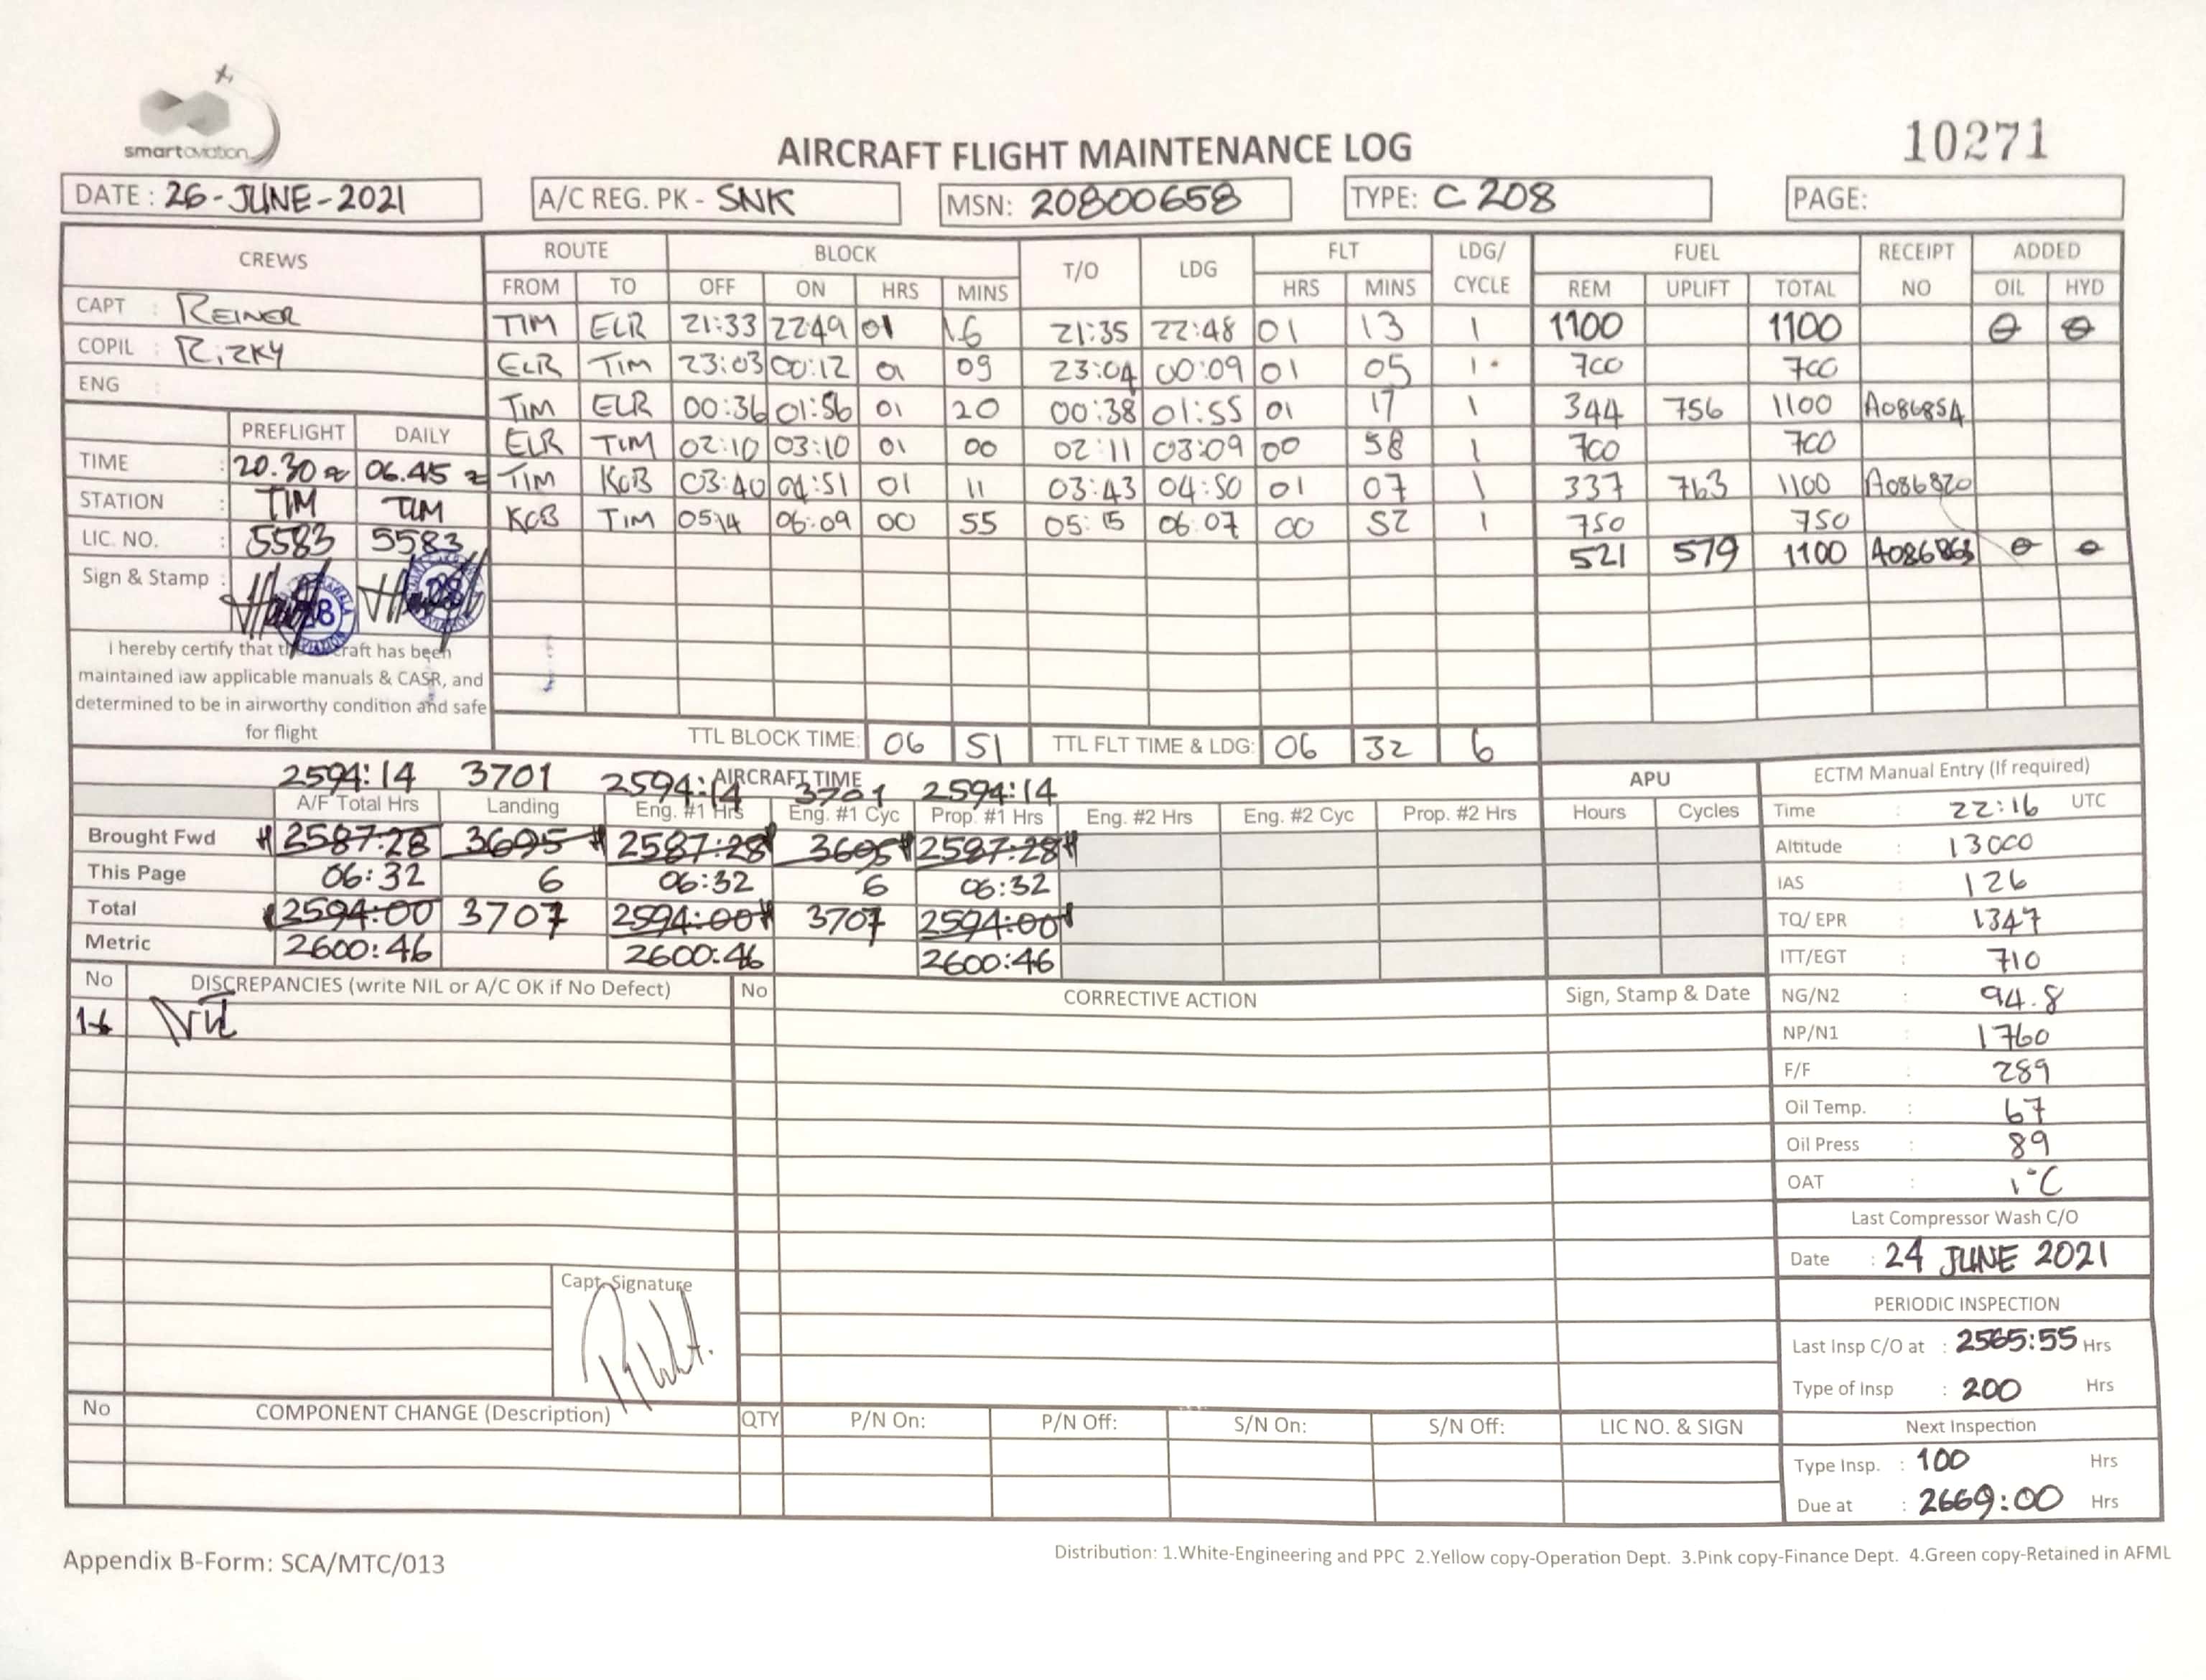 smartaviation
AIRCRAFT FLIGHT MAINTENANCE LOG
10271
DATE : 26-JUNE-2021 A/C REG. PK - SNK MSN: 20800658 TYPE: C 208 PAGE:
CREWS ROUTE BLOCK T/O LDG FLT LDG/ CYCLE FUEL RECEIPT NO ADDED
FROM TO OFF ON HRS MINS HRS MINS REM UPLIFT TOTAL OIL HYD
CAPT : REINER
COPIL : RIZKY
ENG :
TIM ELR 21:33 2249 01 16 21:35 22:48 01 13 1 1100 1100 0 0
ELR TIM 23:03 00:12 01 09 23:04 00:09 01 05 1 700 700
TIM ELR 00:36 01:56 01 20 00:38 01:55 01 17 1 344 756 1100 A086854
ELR TIM 02:10 03:10 01 00 02:11 03:09 00 58 1 700 700
TIM KCB 03:40 04:51 01 11 03:43 04:50 01 07 1 337 763 1100 A086820
KCB TIM 0514 06:09 00 55 05:15 06:07 00 52 1 750 750
521 579 1100 0 0
PREFLIGHT DAILY
TIME : 20.30 z 06.45 z
STATION : TIM TIM
LIC. NO. : 5583 5583
Sign & Stamp :
I hereby certify that the aircraft has been
maintained iaw applicable manuals & CASR, and
determined to be in airworthy condition and safe
for flight
TTL BLOCK TIME: 06 51 TTL FLT TIME & LDG: 06 32 6
AIRCRAFT TIME APU
2594:14 3701 2594:14 3701 2594:14
A/F Total Hrs Landing Eng. #1 Hrs Eng. #1 Cyc Prop. #1 Hrs Eng. #2 Hrs Eng. #2 Cyc Prop. #2 Hrs Hours Cycles
Brought Fwd 2587:28 3695 2587:28 3695 2587:28
This Page 06:32 6 06:32 6 06:32
Total 2594:00 3707 2594:00 3707 2594:00
Metric 2600:46 2600:46 2600:46
No DISCREPANCIES (write NIL or A/C OK if No Defect) No CORRECTIVE ACTION Sign, Stamp & Date
1-6 Nil
Capt. Signature
ECTM Manual Entry (If required)
Time : 22:16 UTC
Altitude : 13000
IAS : 126
TQ/ EPR : 1347
ITT/EGT : 710
NG/N2 : 94.8
NP/N1 : 1760
F/F : 289
Oil Temp. : 67
Oil Press : 89
OAT : 1°C
Last Compressor Wash C/O
Date : 24 JUNE 2021
PERIODIC INSPECTION
Last Insp C/O at : 2565:55 Hrs
Type of Insp : 200 Hrs
Next Inspection
Type Insp. : 100 Hrs
Due at : 2669:00 Hrs
No COMPONENT CHANGE (Description) QTY P/N On: P/N Off: S/N On: S/N Off: LIC NO. & SIGN
Appendix B-Form: SCA/MTC/013
Distribution: 1.White-Engineering and PPC 2.Yellow copy-Operation Dept. 3.Pink copy-Finance Dept. 4.Green copy-Retained in AFML